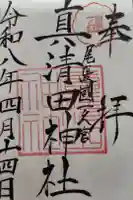 奉拝
尾張國一之宮
真清田神社
令和八年四月十四日